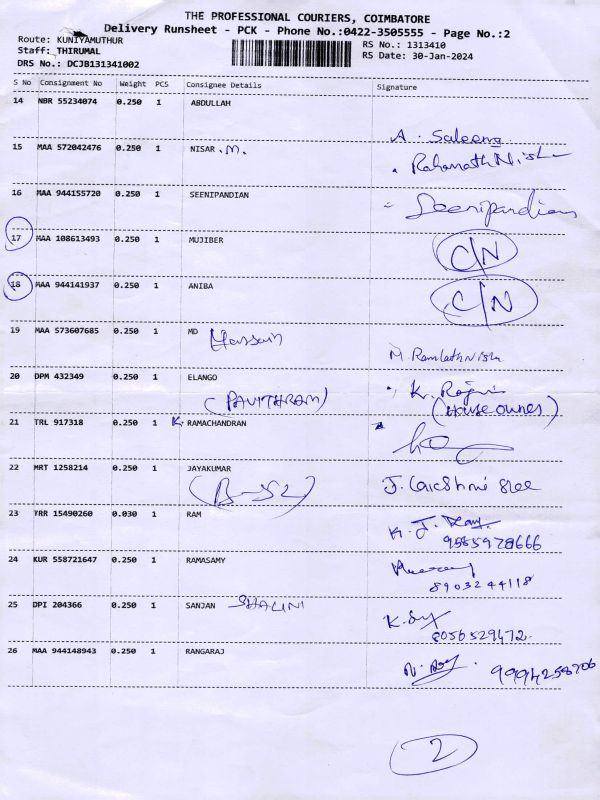 THE PROFESSIONAL COURIERS, COIMBATORE
Delivery Runsheet - PCK - Phone No.:0422-3505555 - Page No.:2
Route: KUNIYAMUTHUR
RS No.: 1313410
Staff: THIRUMAL
RS Date: 30-Jan-2024
DRS No.: DCJB131341002
S No Consignment No Weight PCS Consignee Details Signature
14 NBR 55234074 0.250 1 ABDULLAH
A. Saleema
15 MAA 572042476 0.250 1 NISAR .M.
Rahamath Nisha
16 MAA 944155720 0.250 1 SEENIPANDIAN
Seenipandian
17 MAA 108613493 0.250 1 MUJIBER
C/N
18 MAA 944141937 0.250 1 ANIBA
C/N
19 MAA 573607685 0.250 1 MD Hassain
M. Ramlath Nisha
20 DPM 432349 0.250 1 ELANGO
(PAVITHRAM)
K.
(House owner)
21 TRL 917318 0.250 1 K. RAMACHANDRAN
22 MRT 1258214 0.250 1 JAYAKUMAR
(B-52)
J. Lakshmi Sree
23 TRR 15490260 0.030 1 RAM
K. J.
9585978666
24 KUR 558721647 0.250 1 RAMASAMY
8903244118
25 DPI 204366 0.250 1 SANJAN SHALINI
K.
8056529472
26 MAA 944148943 0.250 1 RANGARAJ
9994258706
2